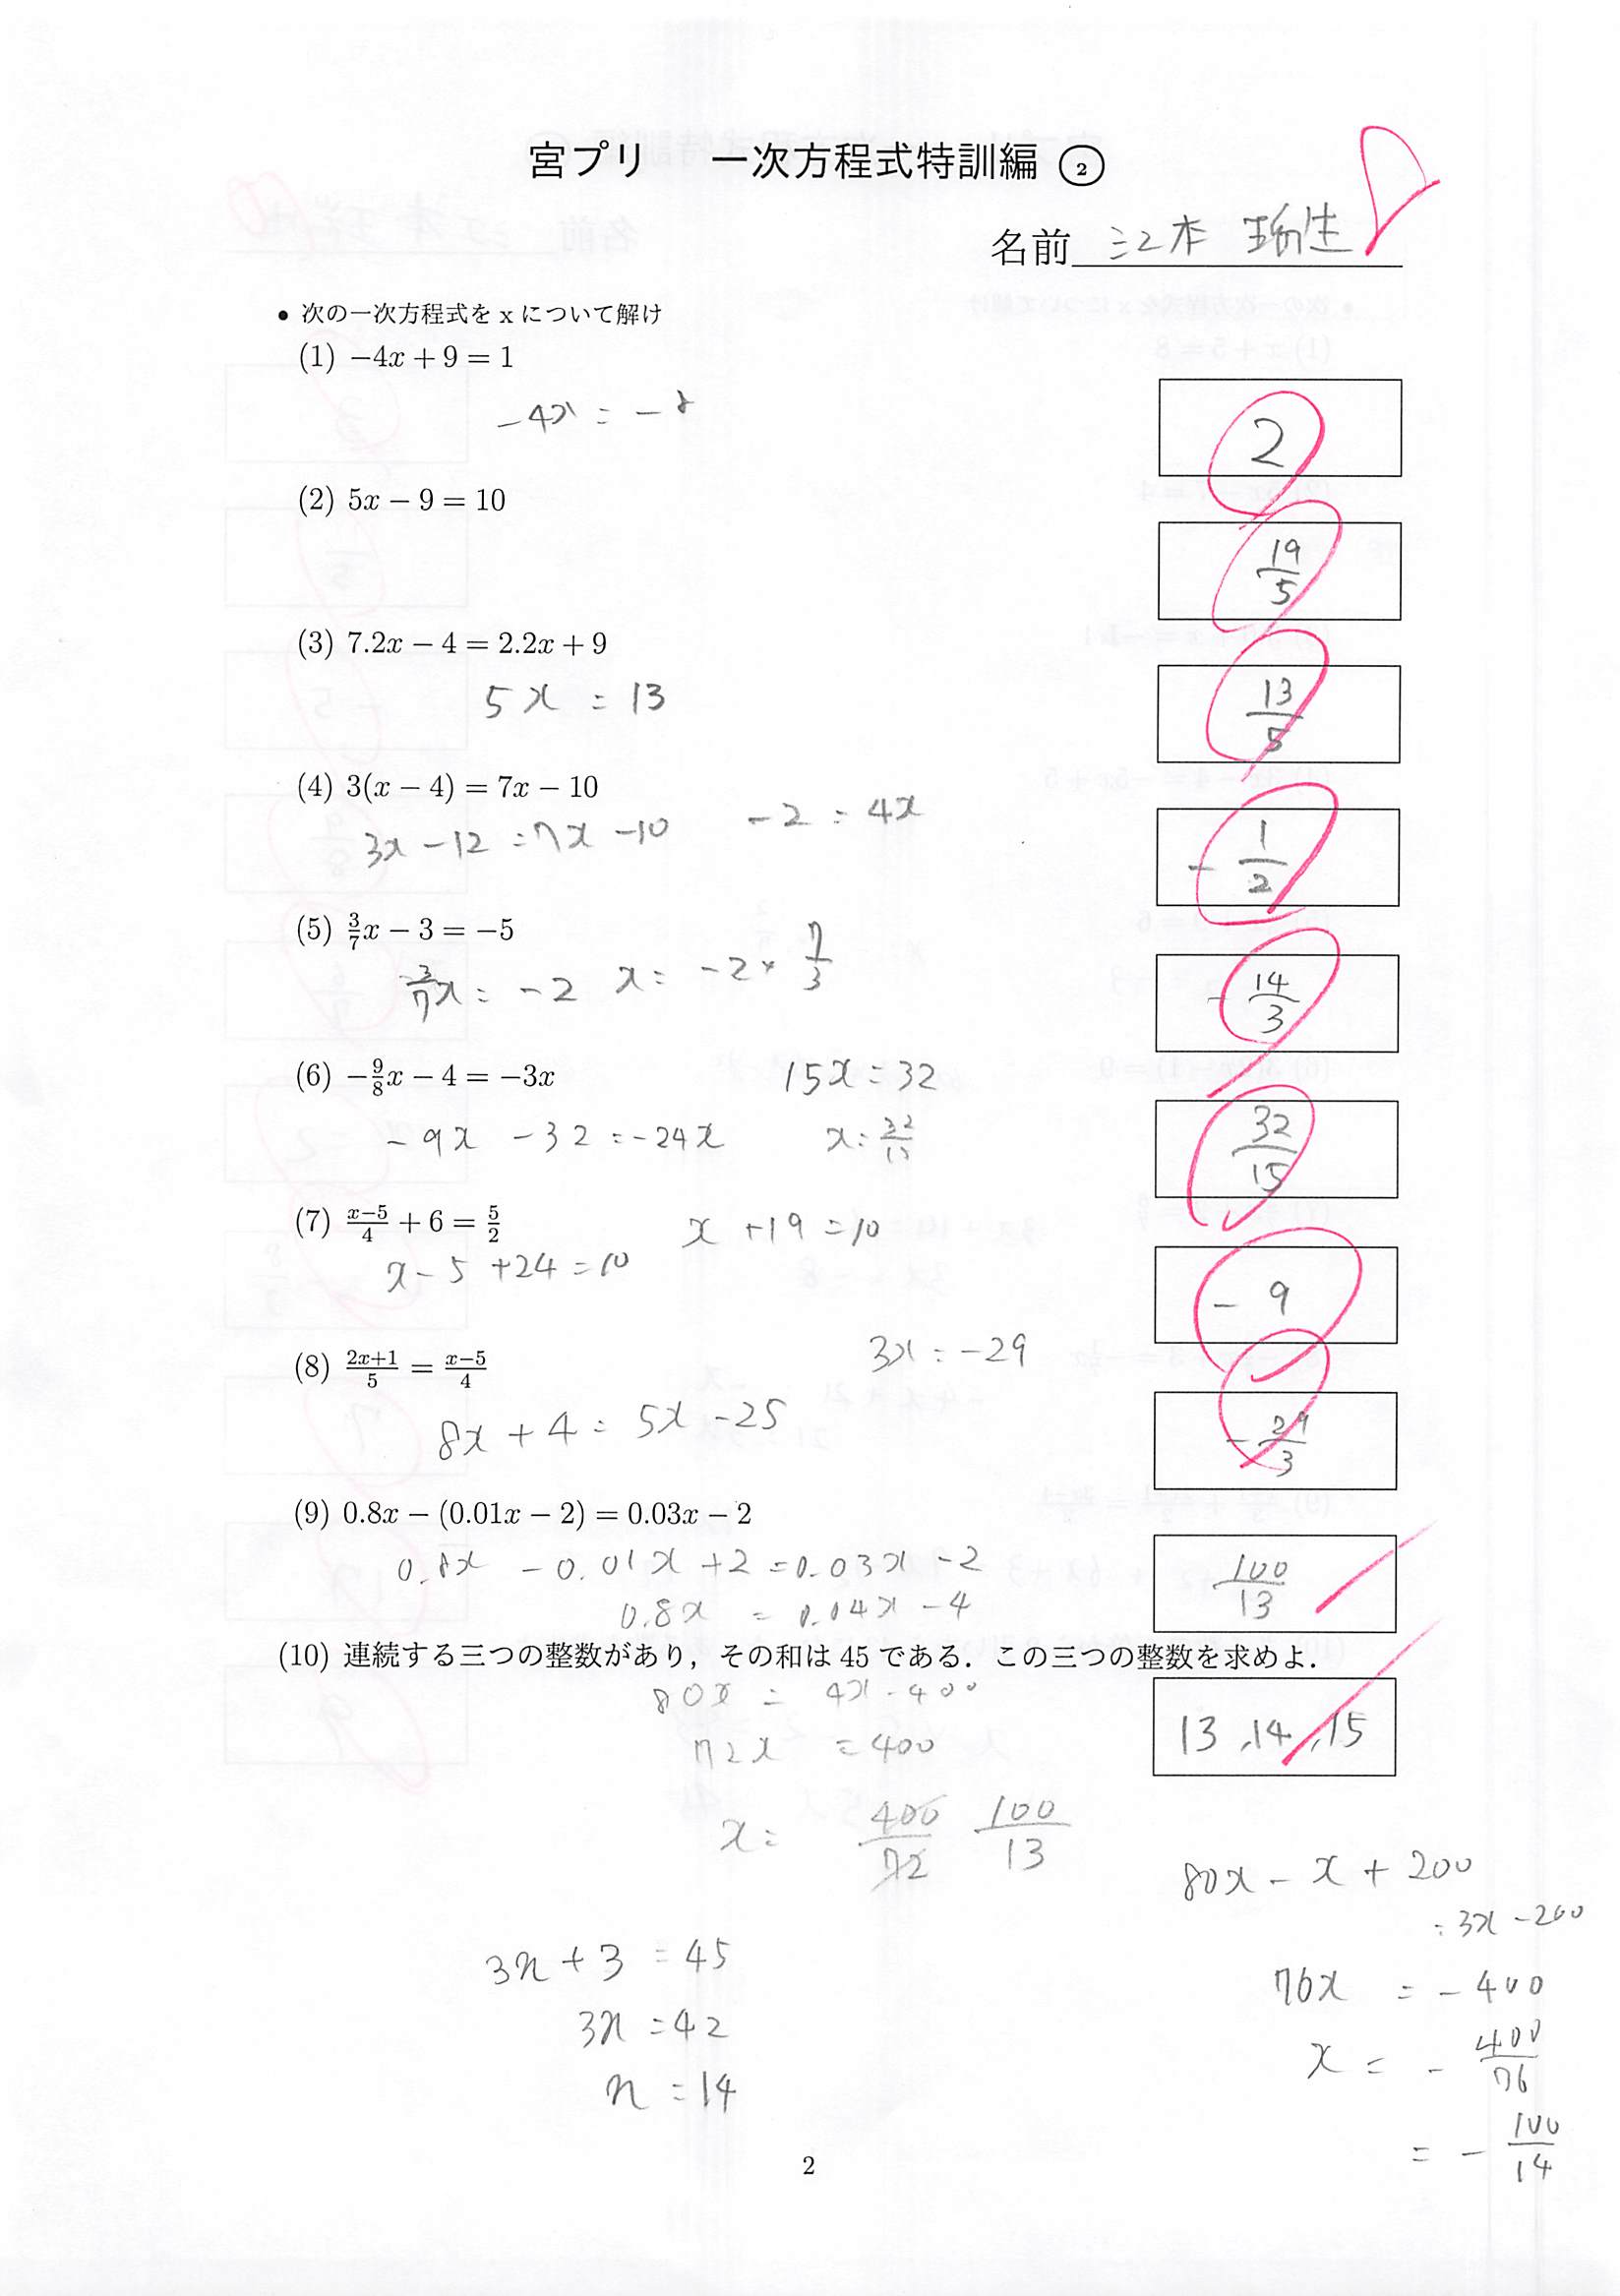 宮プリ 一次方程式特訓編 ②
名前 江本
• 次の一次方程式を x について解け
(1) −4x + 9 = 1
-4x = -8
2
(2) 5x − 9 = 10
19/5
(3) 7.2x − 4 = 2.2x + 9
5x = 13
13/5
(4) 3(x − 4) = 7x − 10
3x - 12 = 7x - 10 -2 = 4x
- 1/2
(5) 3/7x − 3 = −5
3/7x = -2 x = -2 × 7/3
- 14/3
(6) −9/8x − 4 = −3x
15x = 32
-9x - 32 = -24x x = 32/15
32/15
(7) x−5/4 + 6 = 5/2
x + 19 = 10
x - 5 + 24 = 10
- 9
(8) 2x+1/5 = x−5/4
3x = -29
8x + 4 = 5x - 25
- 29/3
(9) 0.8x − (0.01x − 2) = 0.03x − 2
0.8x - 0.01x + 2 = 0.03x - 2
0.8x = 0.04x - 4
100/13
(10) 連続する三つの整数があり，その和は 45 である．この三つの整数を求めよ．
80x = 4x - 400
72x = 400
13, 14, 15
x = 400/72 100/13
80x - x + 200
= 3x - 200
76x = - 400
x = - 400/76
= - 100/14
3n + 3 = 45
3n = 42
n = 14
2